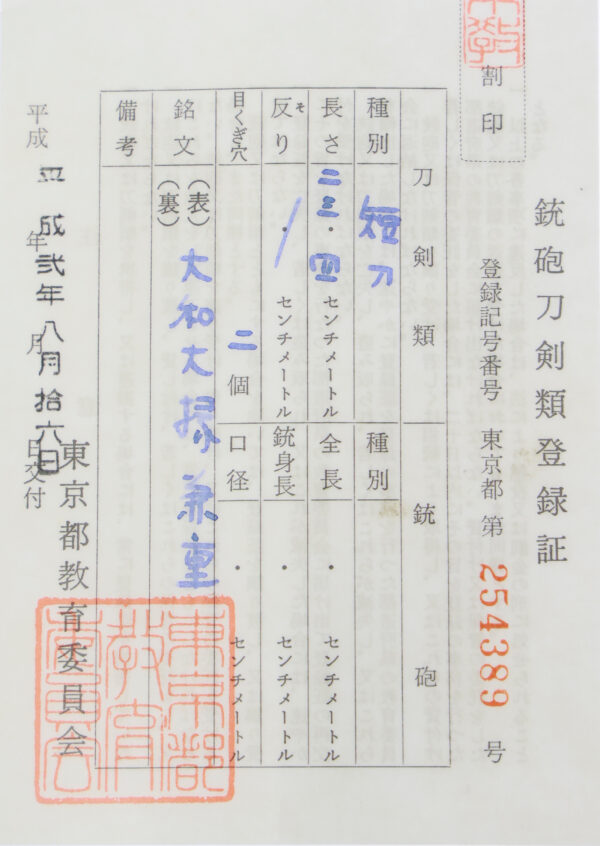 割印
銃砲刀剣類登録証
登録記号番号 東京都 第 254389 号
刀剣類
銃砲
種別 短刀
種別
長さ 二三・四 センチメートル
全長 ・ センチメートル
反り そ ・ センチメートル
銃身長 ・ センチメートル
目くぎ穴 二 個
口径 ・ センチメートル
銘文 (表) 大和大掾兼重
(裏)
備考
平成 年 月 日交付
平成弐年八月拾六日
東京都教育委員会
東京都
教育
委員会